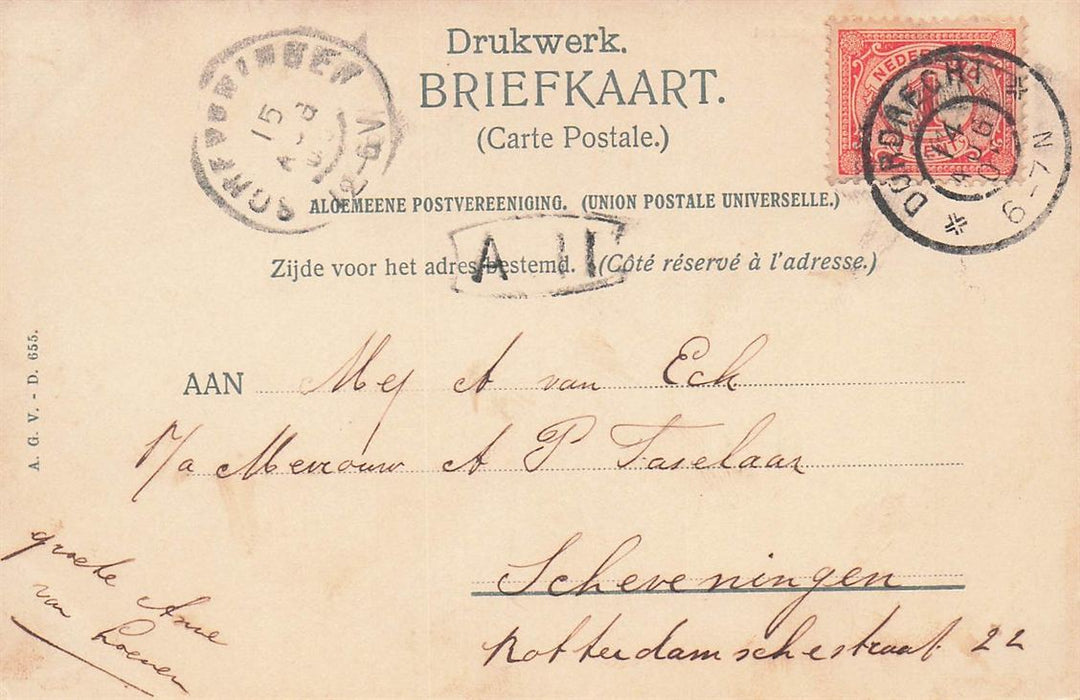 Drukwerk.
BRIEFKAART.
(Carte Postale.)
ALGEMEENE POSTVEREENIGING. (UNION POSTALE UNIVERSELLE.)
Zijde voor het adres bestemd. (Côté réservé à l'adresse.)
A II
NEDERL
DORDRECHT
14
AUG
6-7N
15
12-6V
A. G. V. - D. 655.
AAN Mej A van Eck
p/a Mevrouw A P Taselaar
Scheveningen
Rotterdamschestraat 22
groete
van